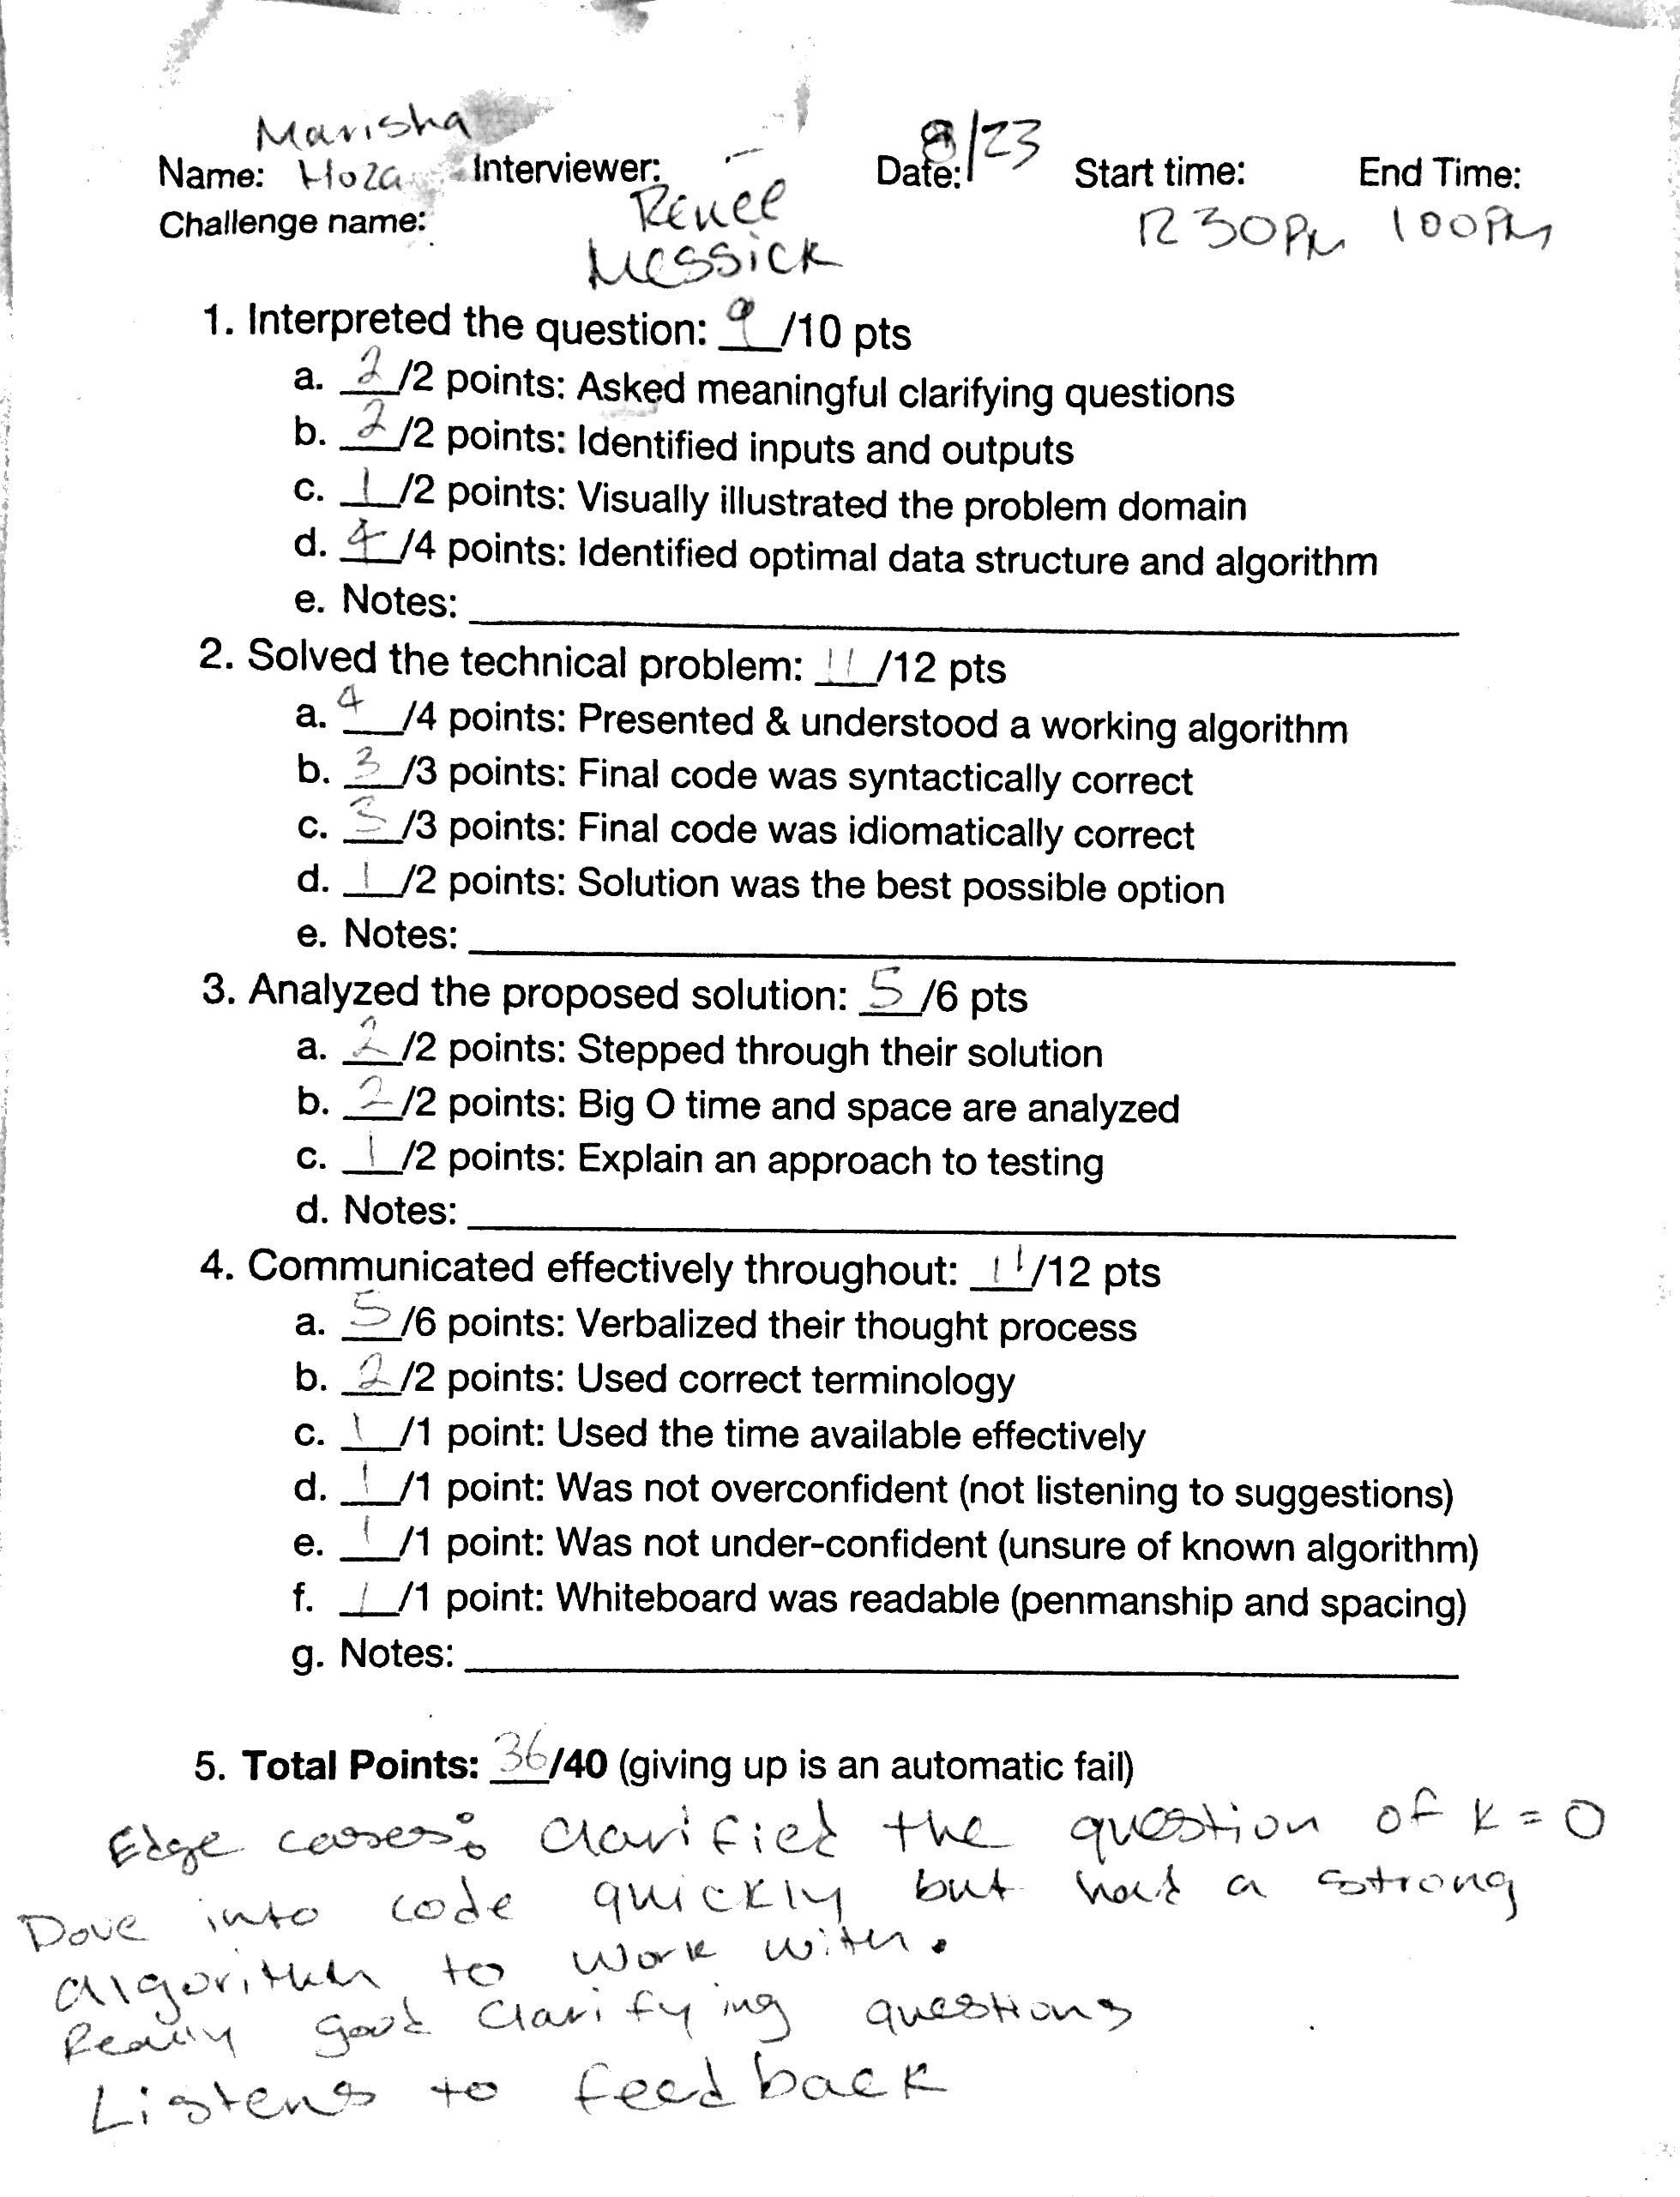 Marisha
Name: Hoza Interviewer: Date: 8/23 Start time: End Time:
Challenge name: Renee 12 30PM 100PM
Messick
1. Interpreted the question: 9/10 pts
a. 2/2 points: Asked meaningful clarifying questions
b. 2/2 points: Identified inputs and outputs
c. 1/2 points: Visually illustrated the problem domain
d. 4/4 points: Identified optimal data structure and algorithm
e. Notes:
2. Solved the technical problem: 11/12 pts
a. 4/4 points: Presented & understood a working algorithm
b. 3/3 points: Final code was syntactically correct
c. 3/3 points: Final code was idiomatically correct
d. 1/2 points: Solution was the best possible option
e. Notes:
3. Analyzed the proposed solution: 5/6 pts
a. 2/2 points: Stepped through their solution
b. 2/2 points: Big O time and space are analyzed
c. 1/2 points: Explain an approach to testing
d. Notes:
4. Communicated effectively throughout: 11/12 pts
a. 5/6 points: Verbalized their thought process
b. 2/2 points: Used correct terminology
c. 1/1 point: Used the time available effectively
d. 1/1 point: Was not overconfident (not listening to suggestions)
e. 1/1 point: Was not under-confident (unsure of known algorithm)
f. 1/1 point: Whiteboard was readable (penmanship and spacing)
g. Notes:
5. Total Points: 36/40 (giving up is an automatic fail)
Edge cases: Clarified the question of k = 0
Dove into code quickly but had a strong
algorithm to work with.
Really good clarifying questions
Listens to feedback